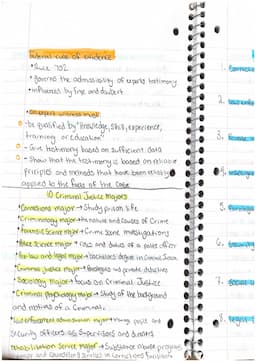 Federal rule of evidence
• Rule 702
• Governs the admissibility of experts testimony
• influenced by Frye and daubert
• an expert witness must
- be qualified by "knowledge, skill, experience,
training or education"
- Give testimony based on sufficient data
- Show that the testimony is based on reliable
principles and methods that have been reliably
applied to the facts of the case
10 Criminal Justice Majors
• Corrections major → Study prison life
• Criminology major → the nature and causes of crime
• Forensic Science major → Crime scene investigations
• Police Science major → roles and duties of a police officer
• Pre-law and legal major → bachelors degree in Criminal Justice
• Criminal justice major →
• Sociology major → focus on Criminal Justice
• Criminal psychology major → Study of the background
and motives of a Criminal
• Law enforcement administration major → police and
Security officers as Supervisors and directors
rehabilitation Service major → Substance abuse programs
and counseling services in corrections facilities
1.
2.
3.
4.
5.
6.
7.
8.